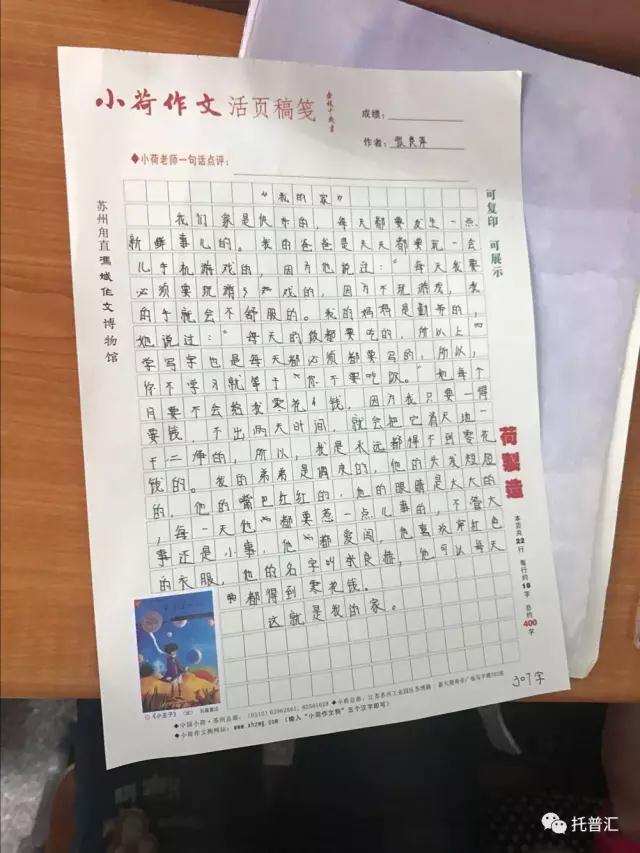 小荷作文 活页稿笺
成绩:
作者: 张良萍
◆小荷老师一句话点评:
可复印 可展示
苏州甪直 作文博物馆
《我的家》
我们家是快乐的，每天都要发生一点
新鲜事儿的。我的爸爸是天天都要玩一会
儿手机游戏的，因为他说过："每天我要
必须要玩游戏的，因为不玩游戏，我
的手就会不舒服的。我的妈妈是勤劳的，
她说过："每天的饭都要吃的，所以上
学写字也是每天都必须都要写的，所以，
你不学习就等于"你不要吃饭。"她每个
月要不会给我零花钱，因为我只要一得
要钱，不出两天时间，就会把它着天地一
干二净的，所以，我是永远都得不到零花
钱的。我的弟弟是调皮的，他的头发短短
的，他的嘴巴红红的，他的眼睛是大大的
，每一天他都要惹一点儿事的，不管大
事还是小事，他都爱闯。他喜欢穿红色
的衣服，他的名字叫张良赫，他可以每天
都得到零花钱。
这就是我的家。
荷製造
本页共22行 每行约18字 总约400字
《小王子》
307字
◆中国小荷·苏州总部:
◆小荷作文狗网站: www.xhzwg.com (输入"小荷作文狗"五个汉字即可)
托普汇